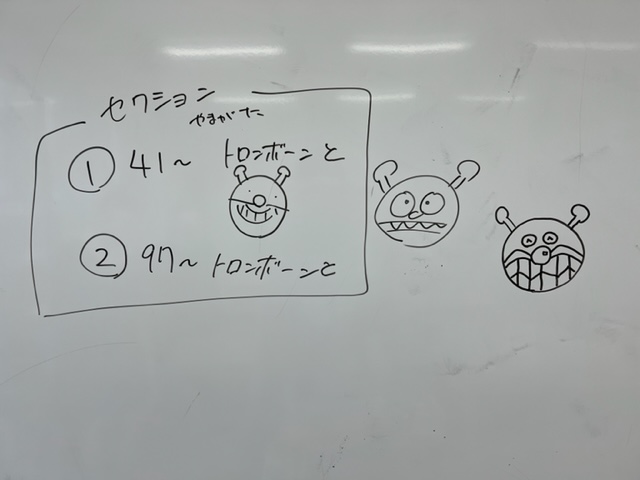 セクション
やまがた
① 41~ トロンボーンと
② 97~ トロンボーンと